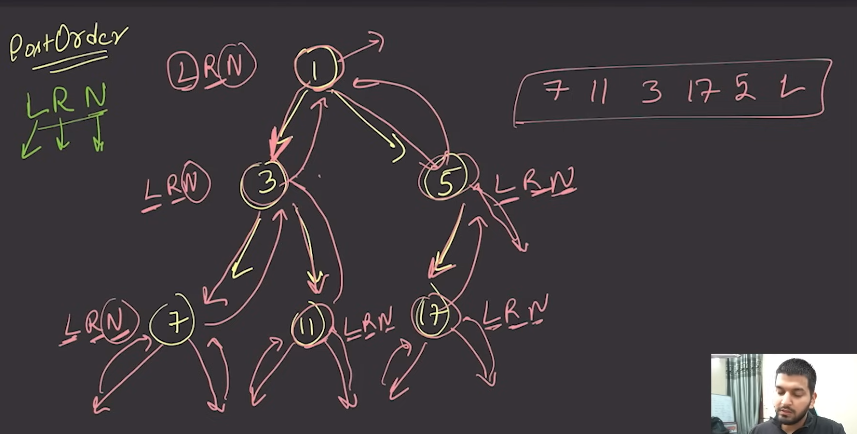 PostOrder
L R N
L R N
1
7 11 3 17 5 1
L R N
3
5
L R N
L R N
7
11
L R N
17
L R N